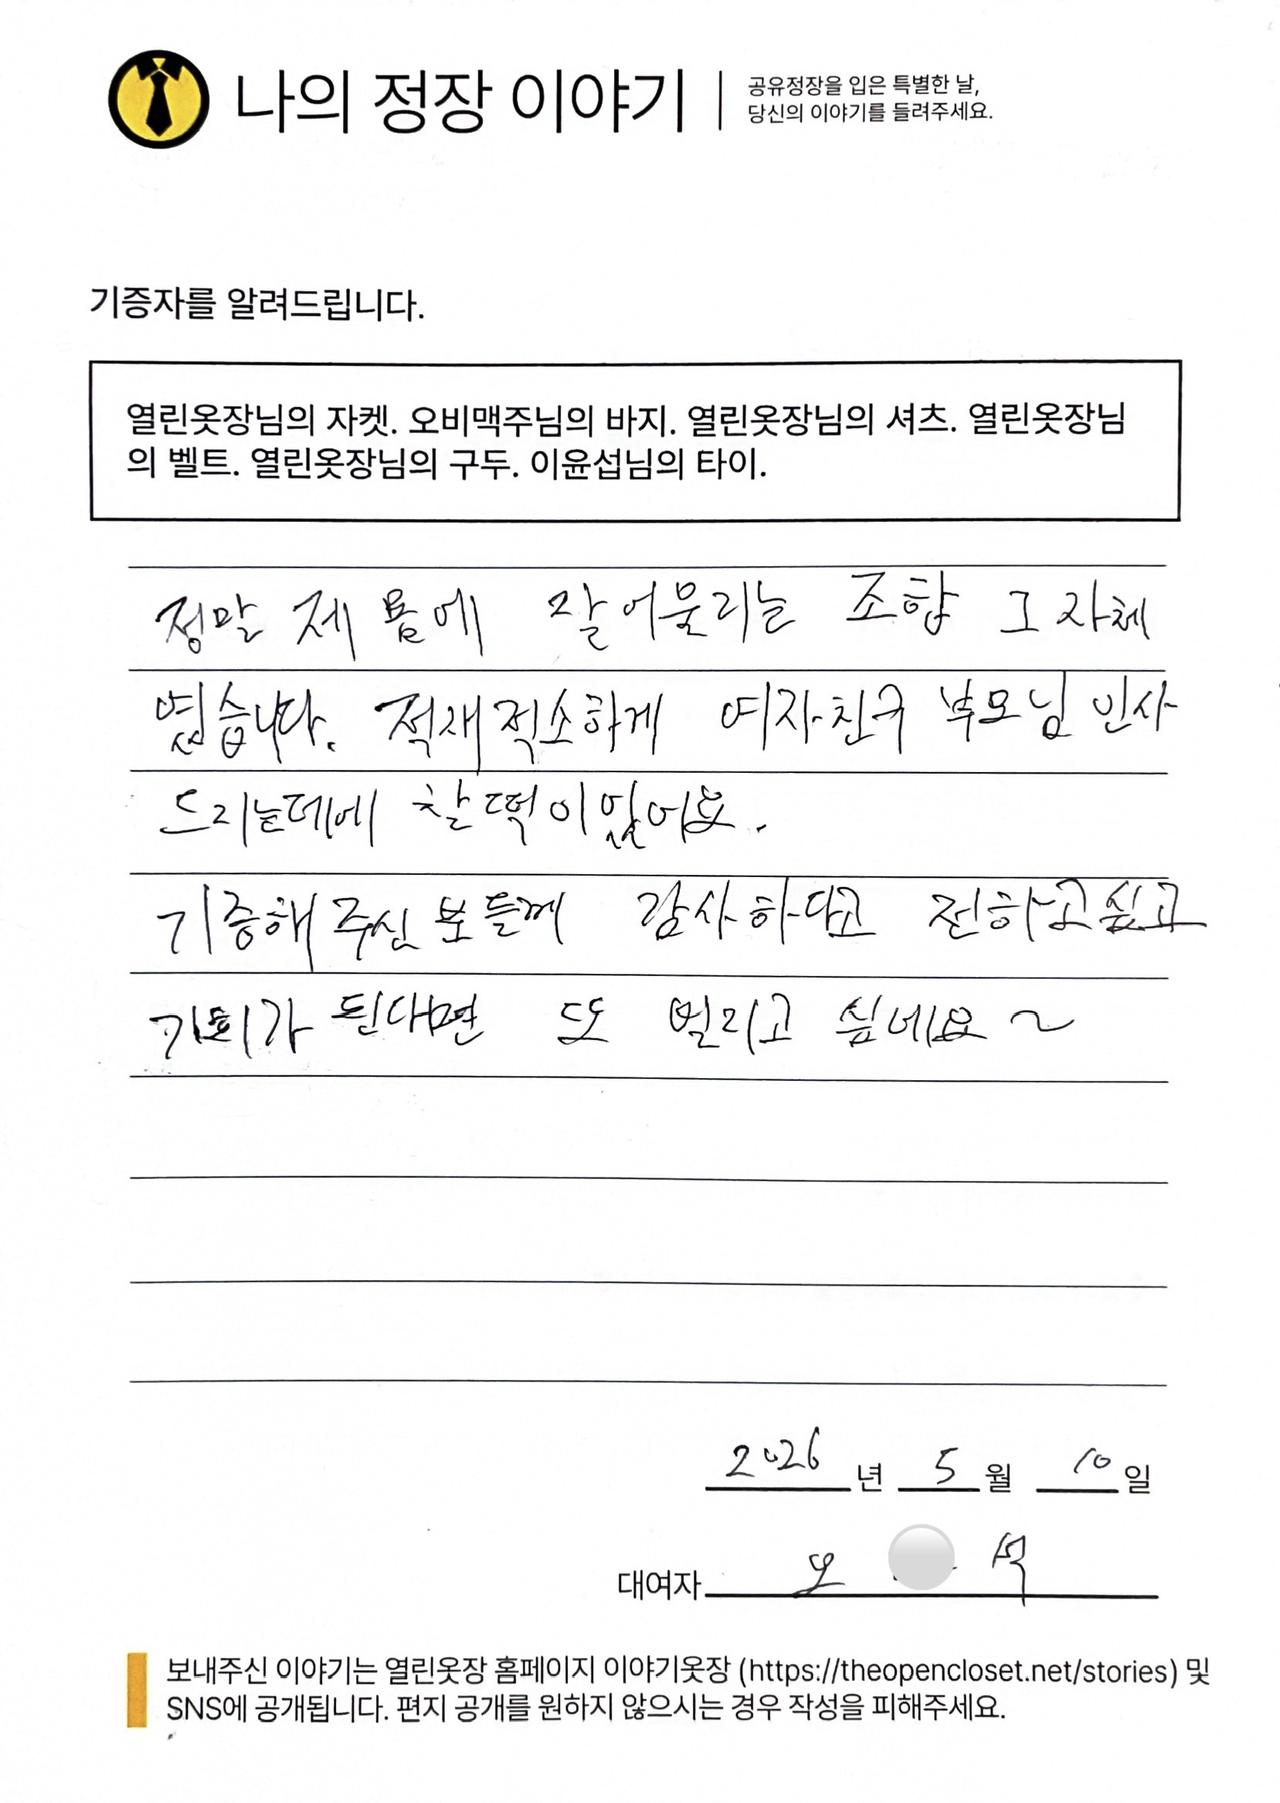 나의 정장 이야기
공유정장을 입은 특별한 날,
당신의 이야기를 들려주세요.
기증자를 알려드립니다.
열린옷장님의 자켓. 오비맥주님의 바지. 열린옷장님의 셔츠. 열린옷장님
의 벨트. 열린옷장님의 구두. 이윤섭님의 타이.
정말 제 몸에 잘 어울리는 조합 그 자체
였습니다. 적재적소하게 여자친구 부모님 인사
드리는데에 찰떡이었어요.
기증해 주신 분들께 감사하다고 전하고싶고
기회가 된다면 또 빌리고 싶네요~
2026 년 5 월 10 일
대여자 오 석
보내주신 이야기는 열린옷장 홈페이지 이야기옷장 (https://theopencloset.net/stories) 및
SNS에 공개됩니다. 편지 공개를 원하지 않으시는 경우 작성을 피해주세요.